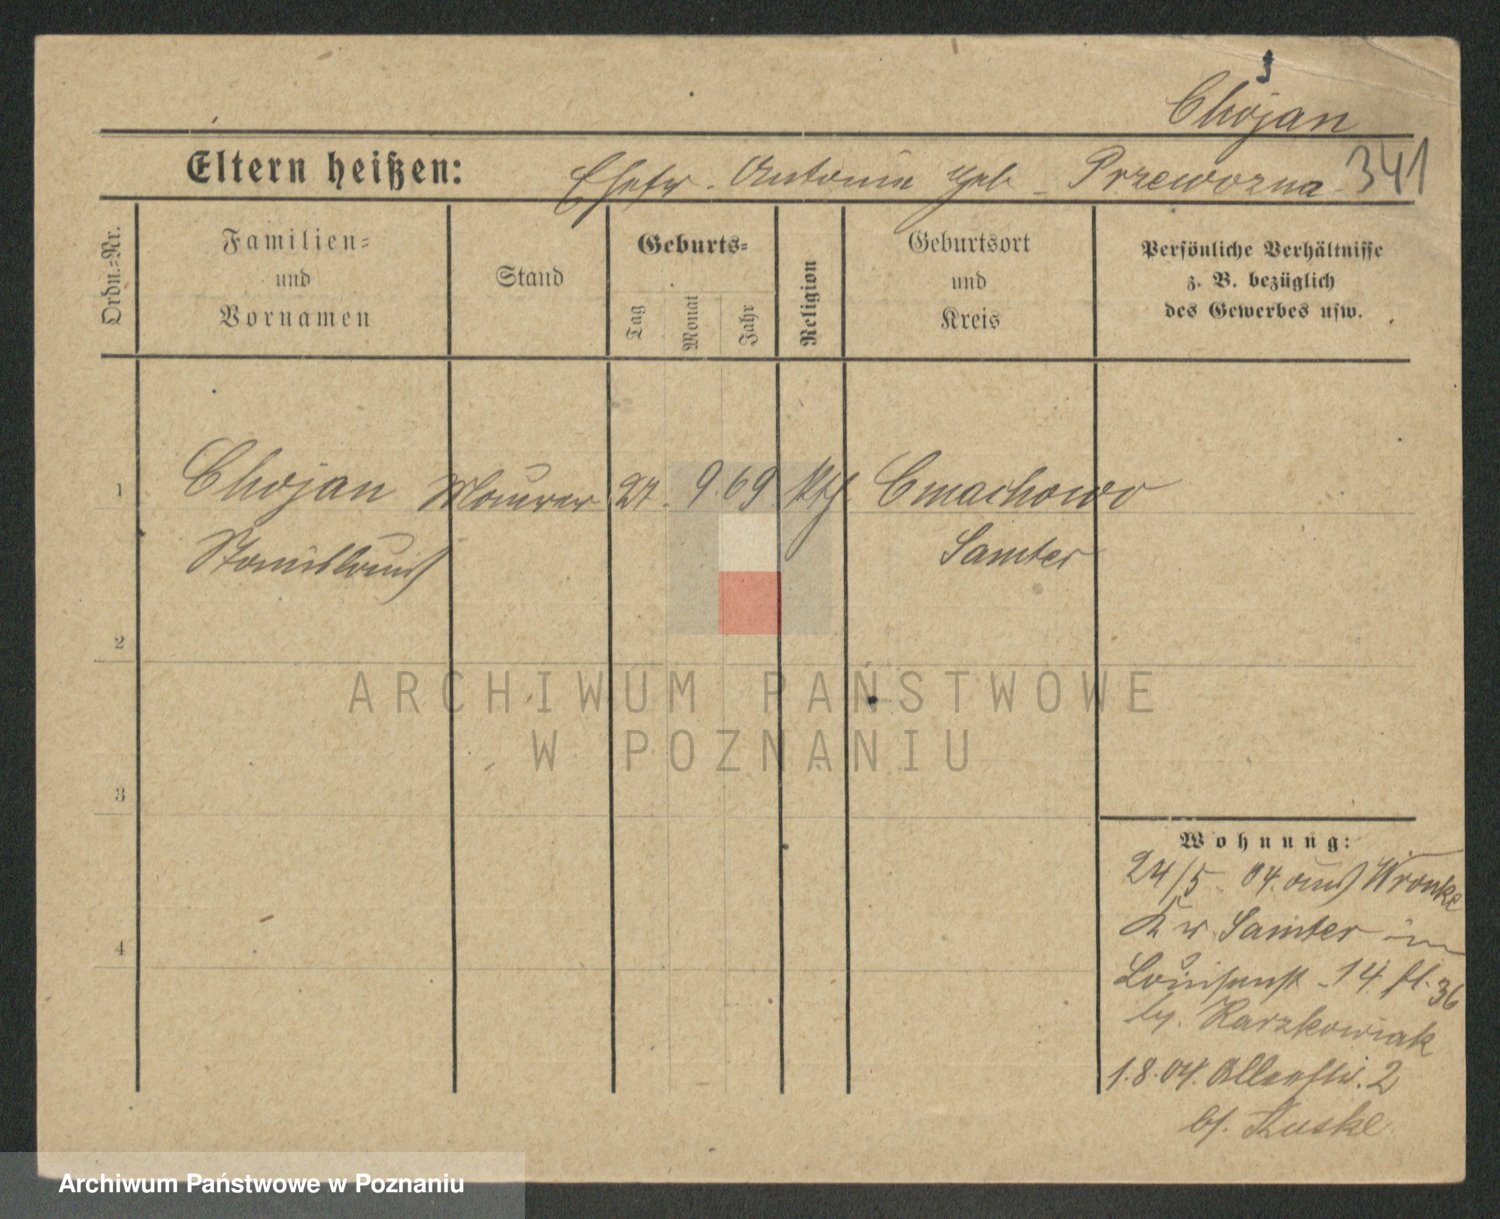 Chojan
341
Eltern heißen: Ehefr. Antonie geb. Przewozna
Ordn.-Nr.
Familien-
und
Vornamen
Stand
Geburts-
Tag
Monat
Jahr
Religion
Geburtsort
und
Kreis
Persönliche Verhältnisse
z. B. bezüglich
des Gewerbes usw.
1 Chojan Maurer 27. 9. 69. kth. Cmachowo
Stanislaus Samter
2
ARCHIWUM PAŃSTWOWE
W POZNANIU
3
Wohnung:
24/5. 04. aus Wronke
Kr. Samter in
Louisenst. 14
4
by. Karzkowiak
1.8.04. 2
bf. Kuske
Archiwum Państwowe w Poznaniu